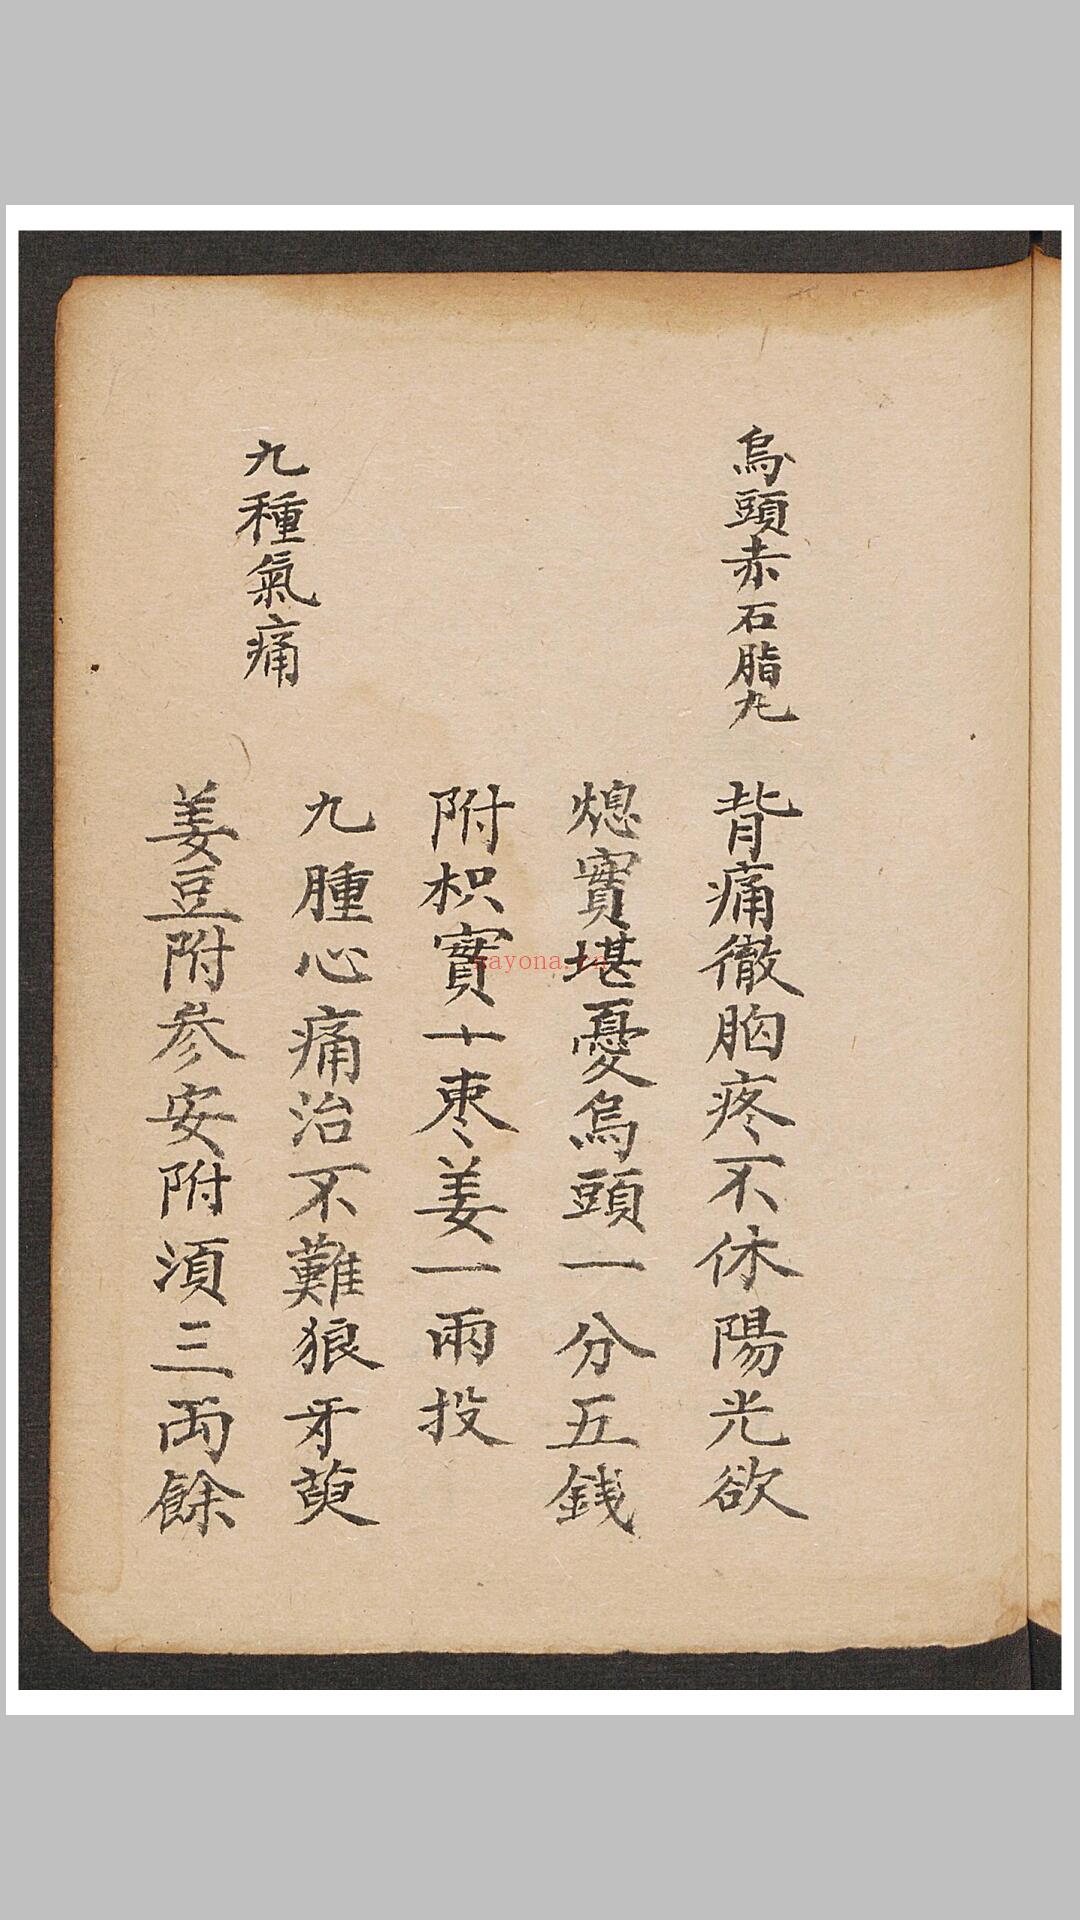 烏頭赤石脂丸
背痛徹胸疼不休陽光欲
熄實堪憂烏頭一分五錢
附枳實十枣姜一兩投
九種氣痛
九腫心痛治不難狼牙萸
姜豆附參安附須三両餘